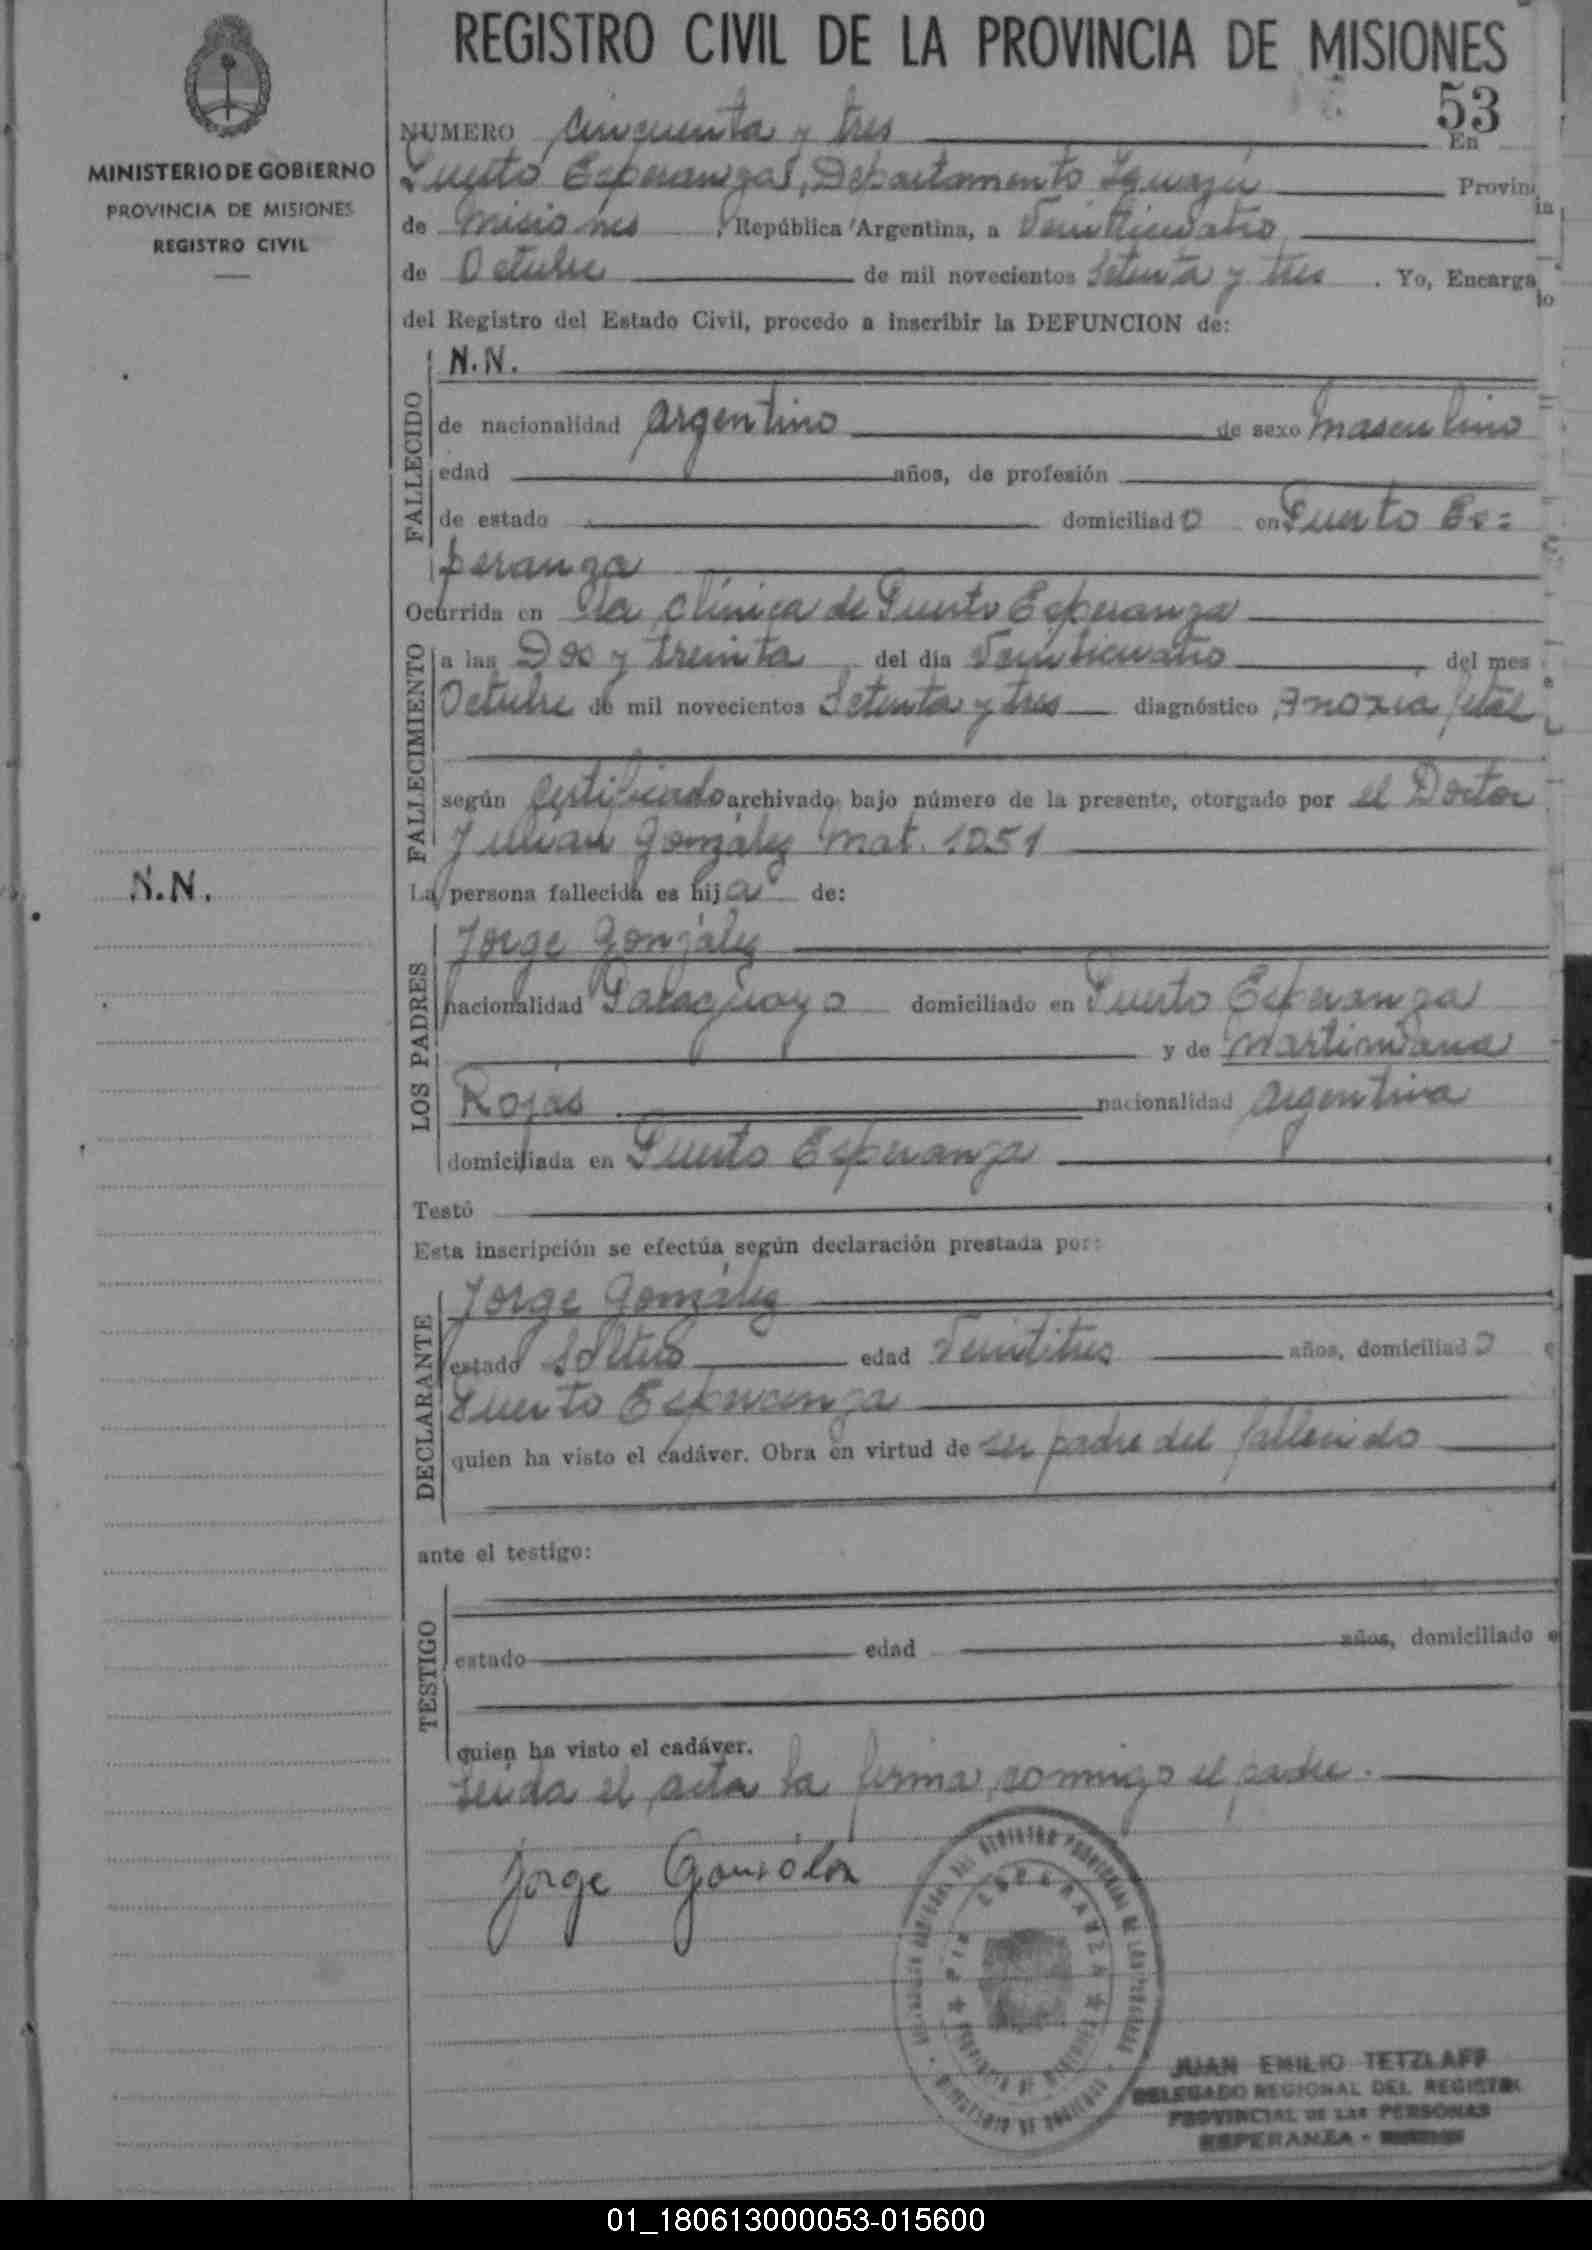 REGISTRO CIVIL DE LA PROVINCIA DE MISIONES
53
MINISTERIO DE GOBIERNO
PROVINCIA DE MISIONES
REGISTRO CIVIL
NUMERO cincuenta y tres En
Puerto Esperanza, Departamento Iguazú Provincia
de Misiones, República Argentina, a Veinticuatro
de Octubre de mil novecientos Setenta y tres. Yo, Encargado
del Registro del Estado Civil, procedo a inscribir la DEFUNCION de:
FALLECIDO
N.N.
de nacionalidad argentino de sexo masculino
edad años, de profesión
de estado domiciliado en Puerto Es=
peranza
Ocurrida en la clínica de Puerto Esperanza
FALLECIMIENTO
a las Dos y treinta del día Veinticuatro del mes
Octubre de mil novecientos Setenta y tres diagnóstico Anoxia fetal
según certificado archivado bajo número de la presente, otorgado por el Doctor
Julian González Mat. 1051
N.N.
La persona fallecida es hija de:
LOS PADRES
Jorge González
nacionalidad Paraguayo domiciliado en Puerto Esperanza
y de Martiniana
Rojas nacionalidad argentina
domiciliada en Puerto Esperanza
Testó
Esta inscripción se efectúa según declaración prestada por:
DECLARANTE
Jorge González
estado Soltero edad Veintitres años, domiciliado e
Puerto Esperanza
quien ha visto el cadáver. Obra en virtud de ser padre del fallecido
ante el testigo:
TESTIGO
estado edad años, domiciliado e
quien ha visto el cadáver.
Leida el acta la firma conmigo el padre.
Jorge González
REGISTRO PROVINCIAL DE LAS PERSONAS
PTO ESPERANZA
PROVINCIA DE MISIONES
JUAN EMILIO TETZLAFF
DELEGADO REGIONAL DEL REGISTRO
PROVINCIAL DE LAS PERSONAS
ESPERANZA - MISIONES
01_180613000053-015600